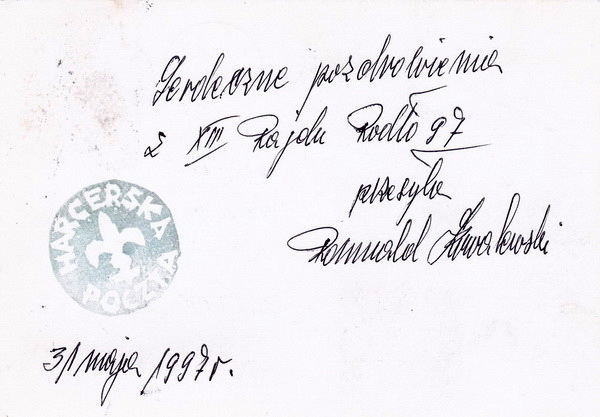 Serdeczne pozdrowienia
z XIII Rajdu Rodło 97
przesyła
Romuald
HARCERSKA
POCZTA
31 maja 1997 r.